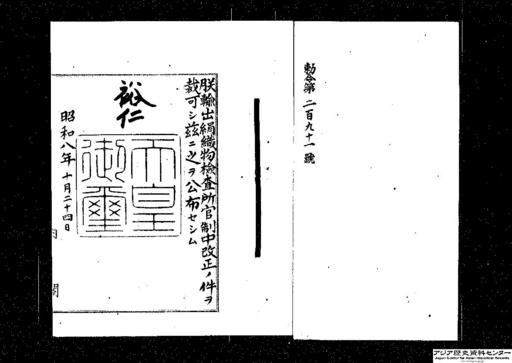 勅令第二百九十一號
朕輸出絹織物檢査所官制中改正ノ件ヲ
裁可シ茲ニ之ヲ公布セシム
裕仁
天皇
御璽
昭和八年十月二十四日
内閣
アジア歴史資料センター
Japan Center for Asian Historical Records